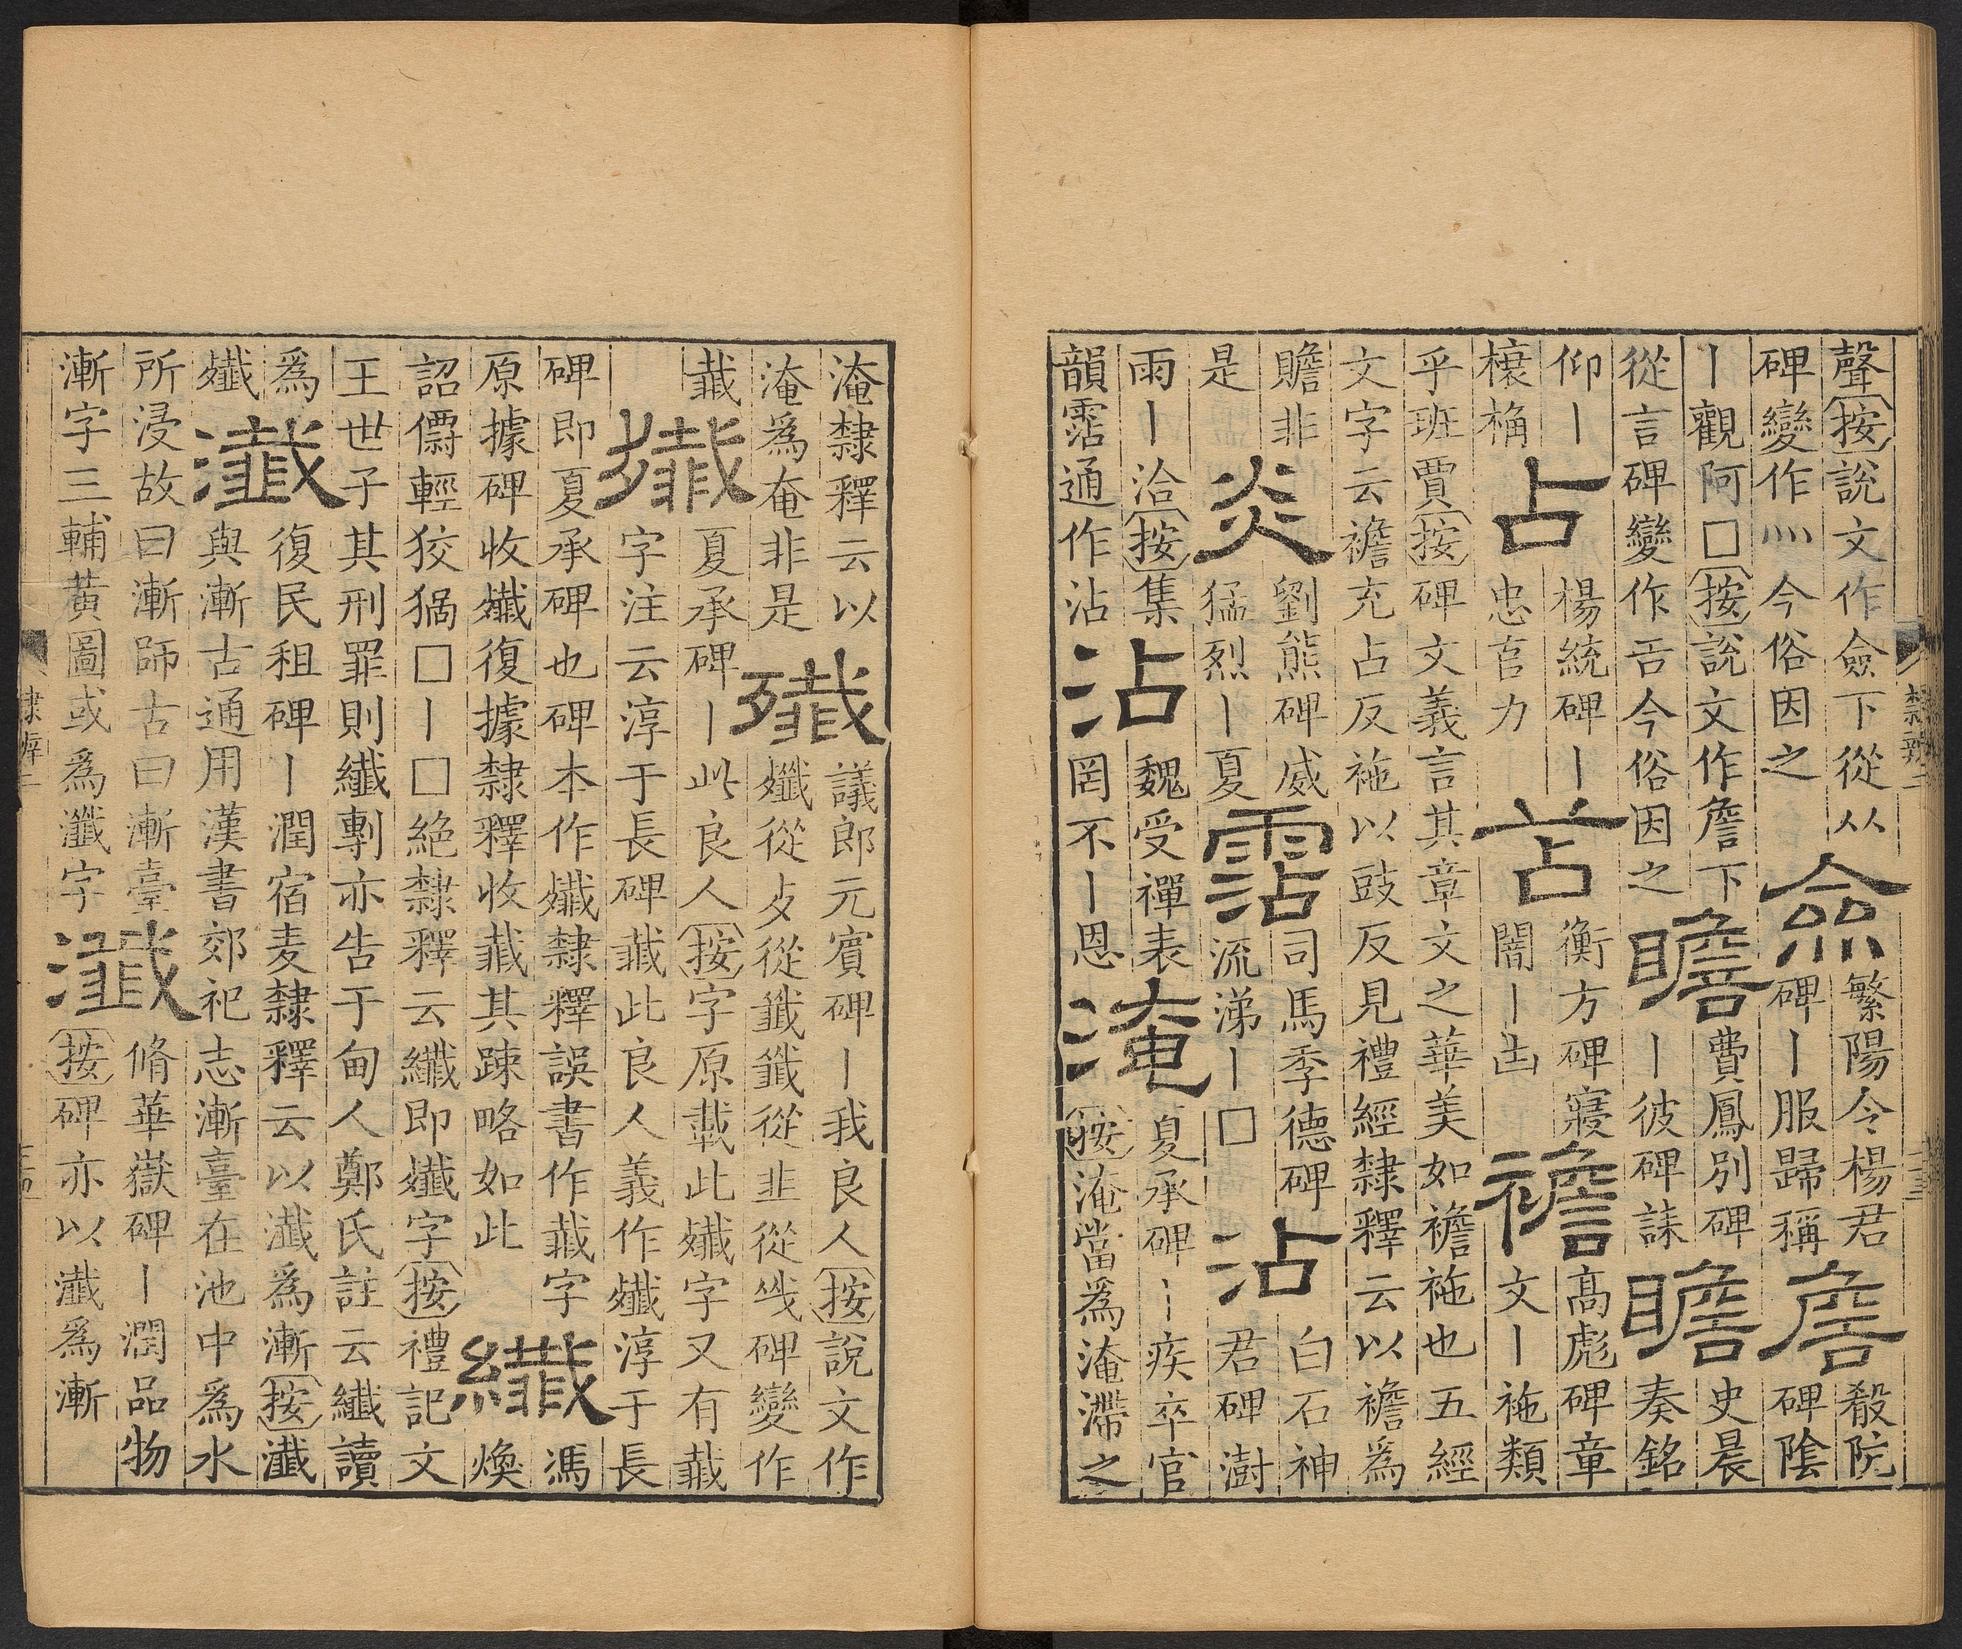 聲按說文作僉下從从
碑變作灬今俗因之
僉
繁陽令楊君
碑丨服歸稱
詹
殽阬
碑陰
丨觀阿□按說文作詹下
從言碑變作㕣今俗因之
瞻
費鳳別碑
丨彼碑誄
瞻
史晨
奏銘
仰丨
榱桷
占
楊統碑丨
忠言力
苫
衡方碑寢
闇丨凷
襜
高彪碑章
文丨袘類
乎班賈按碑文義言其章文之華美如襜袘也五經
文字云襜充占反袘以豉反見禮經隸釋云以襜爲
贍非
是
炎
劉熊碑威
猛烈丨夏
霑
司馬季德碑
流涕丨□
沾
白石神
君碑澍
雨丨洽按集
韻霑通作沾
沾
魏受禪表
罔不丨恩
淹
夏承碑丨疾卒官
按淹當爲淹滯之
隸辨二
淹隸釋云以
淹爲奄非是
殲
議郎元賓碑丨我良人按說文作
殲從歺從韱韱從韭從㦰碑變作
韯
殲
夏承碑丨此良人按字原載此殲字又有韯
字注云淳于長碑韯此良人義作殲淳于長
碑即夏承碑也碑本作殲隸釋誤書作韯字
原據碑收殲復據隸釋收韯其踈略如此
纖
馮
煥
詔輕狡猾□丨□絕隸釋云纖即殲字按禮記文
王世子其刑罪則纖剸亦告于甸人鄭氏註云纖讀
爲
殲
瀸
復民租碑丨潤宿麦隸釋云以瀸爲漸按瀸
與漸古通用漢書郊祀志漸臺在池中爲水
所浸故曰漸師古曰漸臺
漸字三輔黃圖或爲瀸字
瀸
脩華嶽碑丨潤品物
按碑亦以瀸爲漸
隸辨二